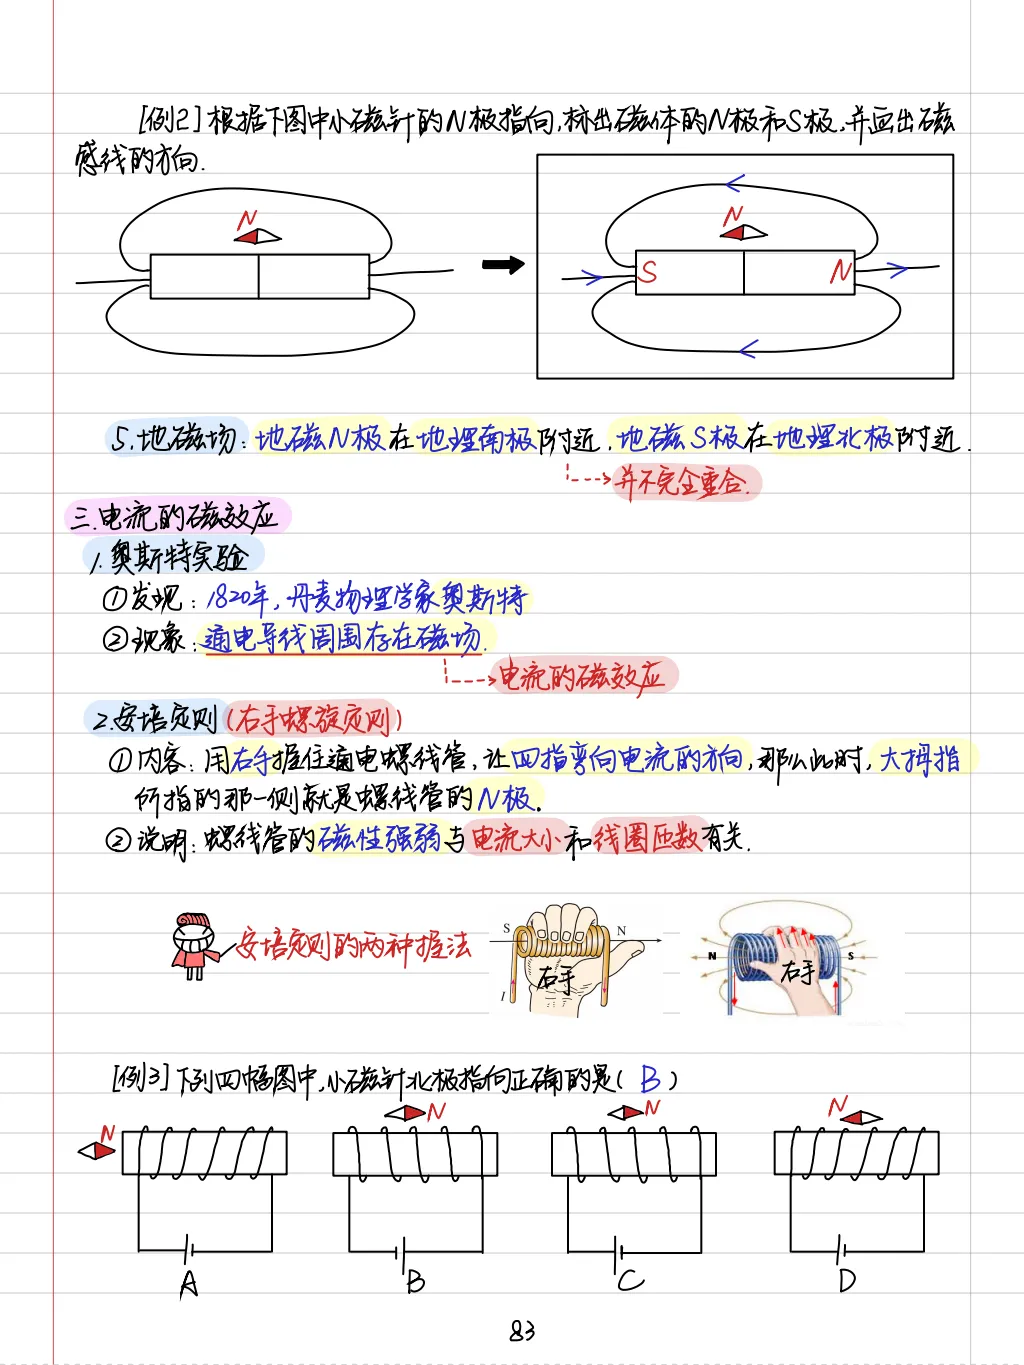 [例2]根据下图中小磁针的N极指向,标出磁体的N极和S极,并画出磁
感线的方向.
N
N
S N
5.地磁场:地磁N极在地理南极附近.地磁S极在地理北极附近.
并不完全重合.
三.电流的磁效应
1.奥斯特实验
①发现:1820年,丹麦物理学家奥斯特
②现象:通电导线周围存在磁场.
电流的磁效应
2.安培定则(右手螺旋定则)
①内容:用右手握住通电螺线管,让四指弯向电流的方向,那么此时,大拇指
所指的那一侧就是螺线管的N极.
②说明:螺线管的磁性强弱与电流大小和线圈匝数有关.
安培定则的两种握法
S N
右手
I
N S
右手
[例3]下列四幅图中,小磁针北极指向正确的是( B )
N N N N
A B C D
83